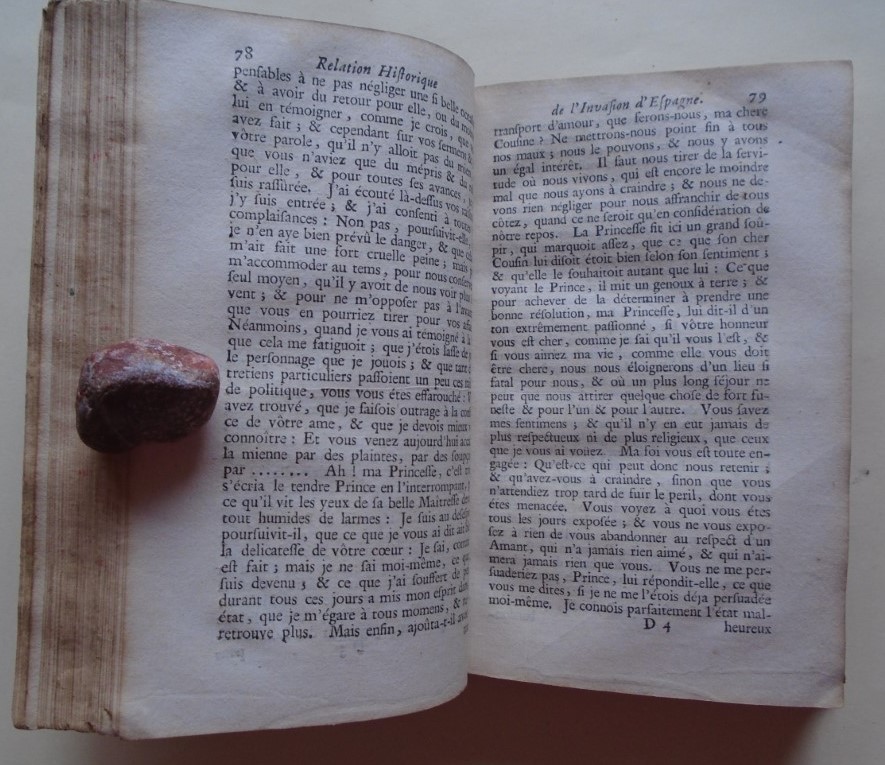 78
Relation Hiſtorique
penſables à ne pas négliger une ſi belle
& à avoir du retour pour elle, ou du
lui en témoigner, comme je crois, que
avez fait; & cependant ſur vos ſermens &
vôtre parole, qu'il n'y alloit pas du
que vous n'aviez que du mépris & du
pour elle, & pour toutes ſes avances,
ſuis raſſûrée. J'ai écouté là-deſſus vos
j'y ſuis entrée; & j'ai conſenti à
complaiſances: Non pas, pourſuivit-elle,
je n'en aye bien prévû le danger, & que
m'ait fait une fort cruelle peine; mais
m'accommoder au tems, pour nous
ſeul moyen, qu'il y avoit de nous voir
vent; & pour ne m'oppoſer pas à
que vous en pourriez tirer pour vos
Néanmoins, quand je vous ai témoigné
que cela me fatiguoit; que j'étois laſſe
le perſonnage que je jouois; & que
tretiens particuliers paſſoient un peu
de politique, vous vous étes effarouché:
avez trouvé, que je faiſois outrage à la
ce de vôtre ame, & que je devois mieux
connoître: Et vous venez aujourd'hui
la mienne par des plaintes, par des
par ........ Ah! ma Princeſſe, c'eſt
s'écria le tendre Prince en l'interrompant,
ce qu'il vit les yeux de ſa belle Maitreſſe
tout humides de larmes: Je ſuis au
pourſuivit-il, que ce que je vous ai dit ait
la délicateſſe de vôtre cœur: Je ſai,
eſt fait; mais je ne ſai moi-même, ce
ſuis devenu; & ce que j'ai ſouffert de
durant tous ces jours a mis mon eſprit
état, que je m'égare à tous momens, &
retrouve plus. Mais enfin, ajoûta-t-il
de l'Invaſion d'Eſpagne. 79
tranſport d'amour, que ferons-nous, ma chere
Couſine? Ne mettrons-nous point fin à tous
nos maux; nous le pouvons, & nous y avons
un égal intérêt. Il faut nous tirer de la ſervi-
tude où nous vivons, qui eſt encore le moindre
mal que nous ayons à craindre; & nous ne de-
vons rien négliger pour nous affranchir de tous
côtez, quand ce ne ſeroit qu'en conſidération de
nôtre repos. La Princeſſe fit ici un grand ſoû-
pir, qui marquoit aſſez, que ce que ſon cher
Couſin lui diſoit étoit bien ſelon ſon ſentiment;
& qu'elle le ſouhaitoit autant que lui: Ce que
voyant le Prince, il mit un genoux à terre; &
pour achever de la déterminer à prendre une
bonne réſolution, ma Princeſſe, lui dit-il d'un
ton extrêmement paſſionné, ſi vôtre honneur
vous eſt cher, comme je ſai qu'il vous l'eſt, &
ſi vous aimez ma vie, comme elle vous doit
être chere, nous nous éloignerons d'un lieu ſi
fatal pour nous, & où un plus long ſéjour ne
peut que nous attirer quelque choſe de fort fu-
neſte & pour l'un & pour l'autre. Vous ſavez
mes ſentimens; & qu'il n'y en eut jamais de
plus reſpectueux ni de plus religieux, que ceux
que je vous ai vouez. Ma foi vous eſt toute en-
gagée: Qu'eſt-ce qui peut donc nous retenir;
& qu'avez-vous à craindre, ſinon que vous
n'attendiez trop tard de fuir le peril, dont vous
étes menacée. Vous voyez à quoi vous étes
tous les jours expoſée; & vous ne vous expo-
ſez à rien de vous abandonner au reſpect d'un
Amant, qui n'a jamais rien aimé, & qui n'ai-
mera jamais rien que vous. Vous ne me per-
ſuaderiez pas, Prince, lui répondit-elle, ce que
vous me dites, ſi je ne me l'étois déja perſuadée
moi-même. Je connois parfaitement l'état mal-
D 4 heureux